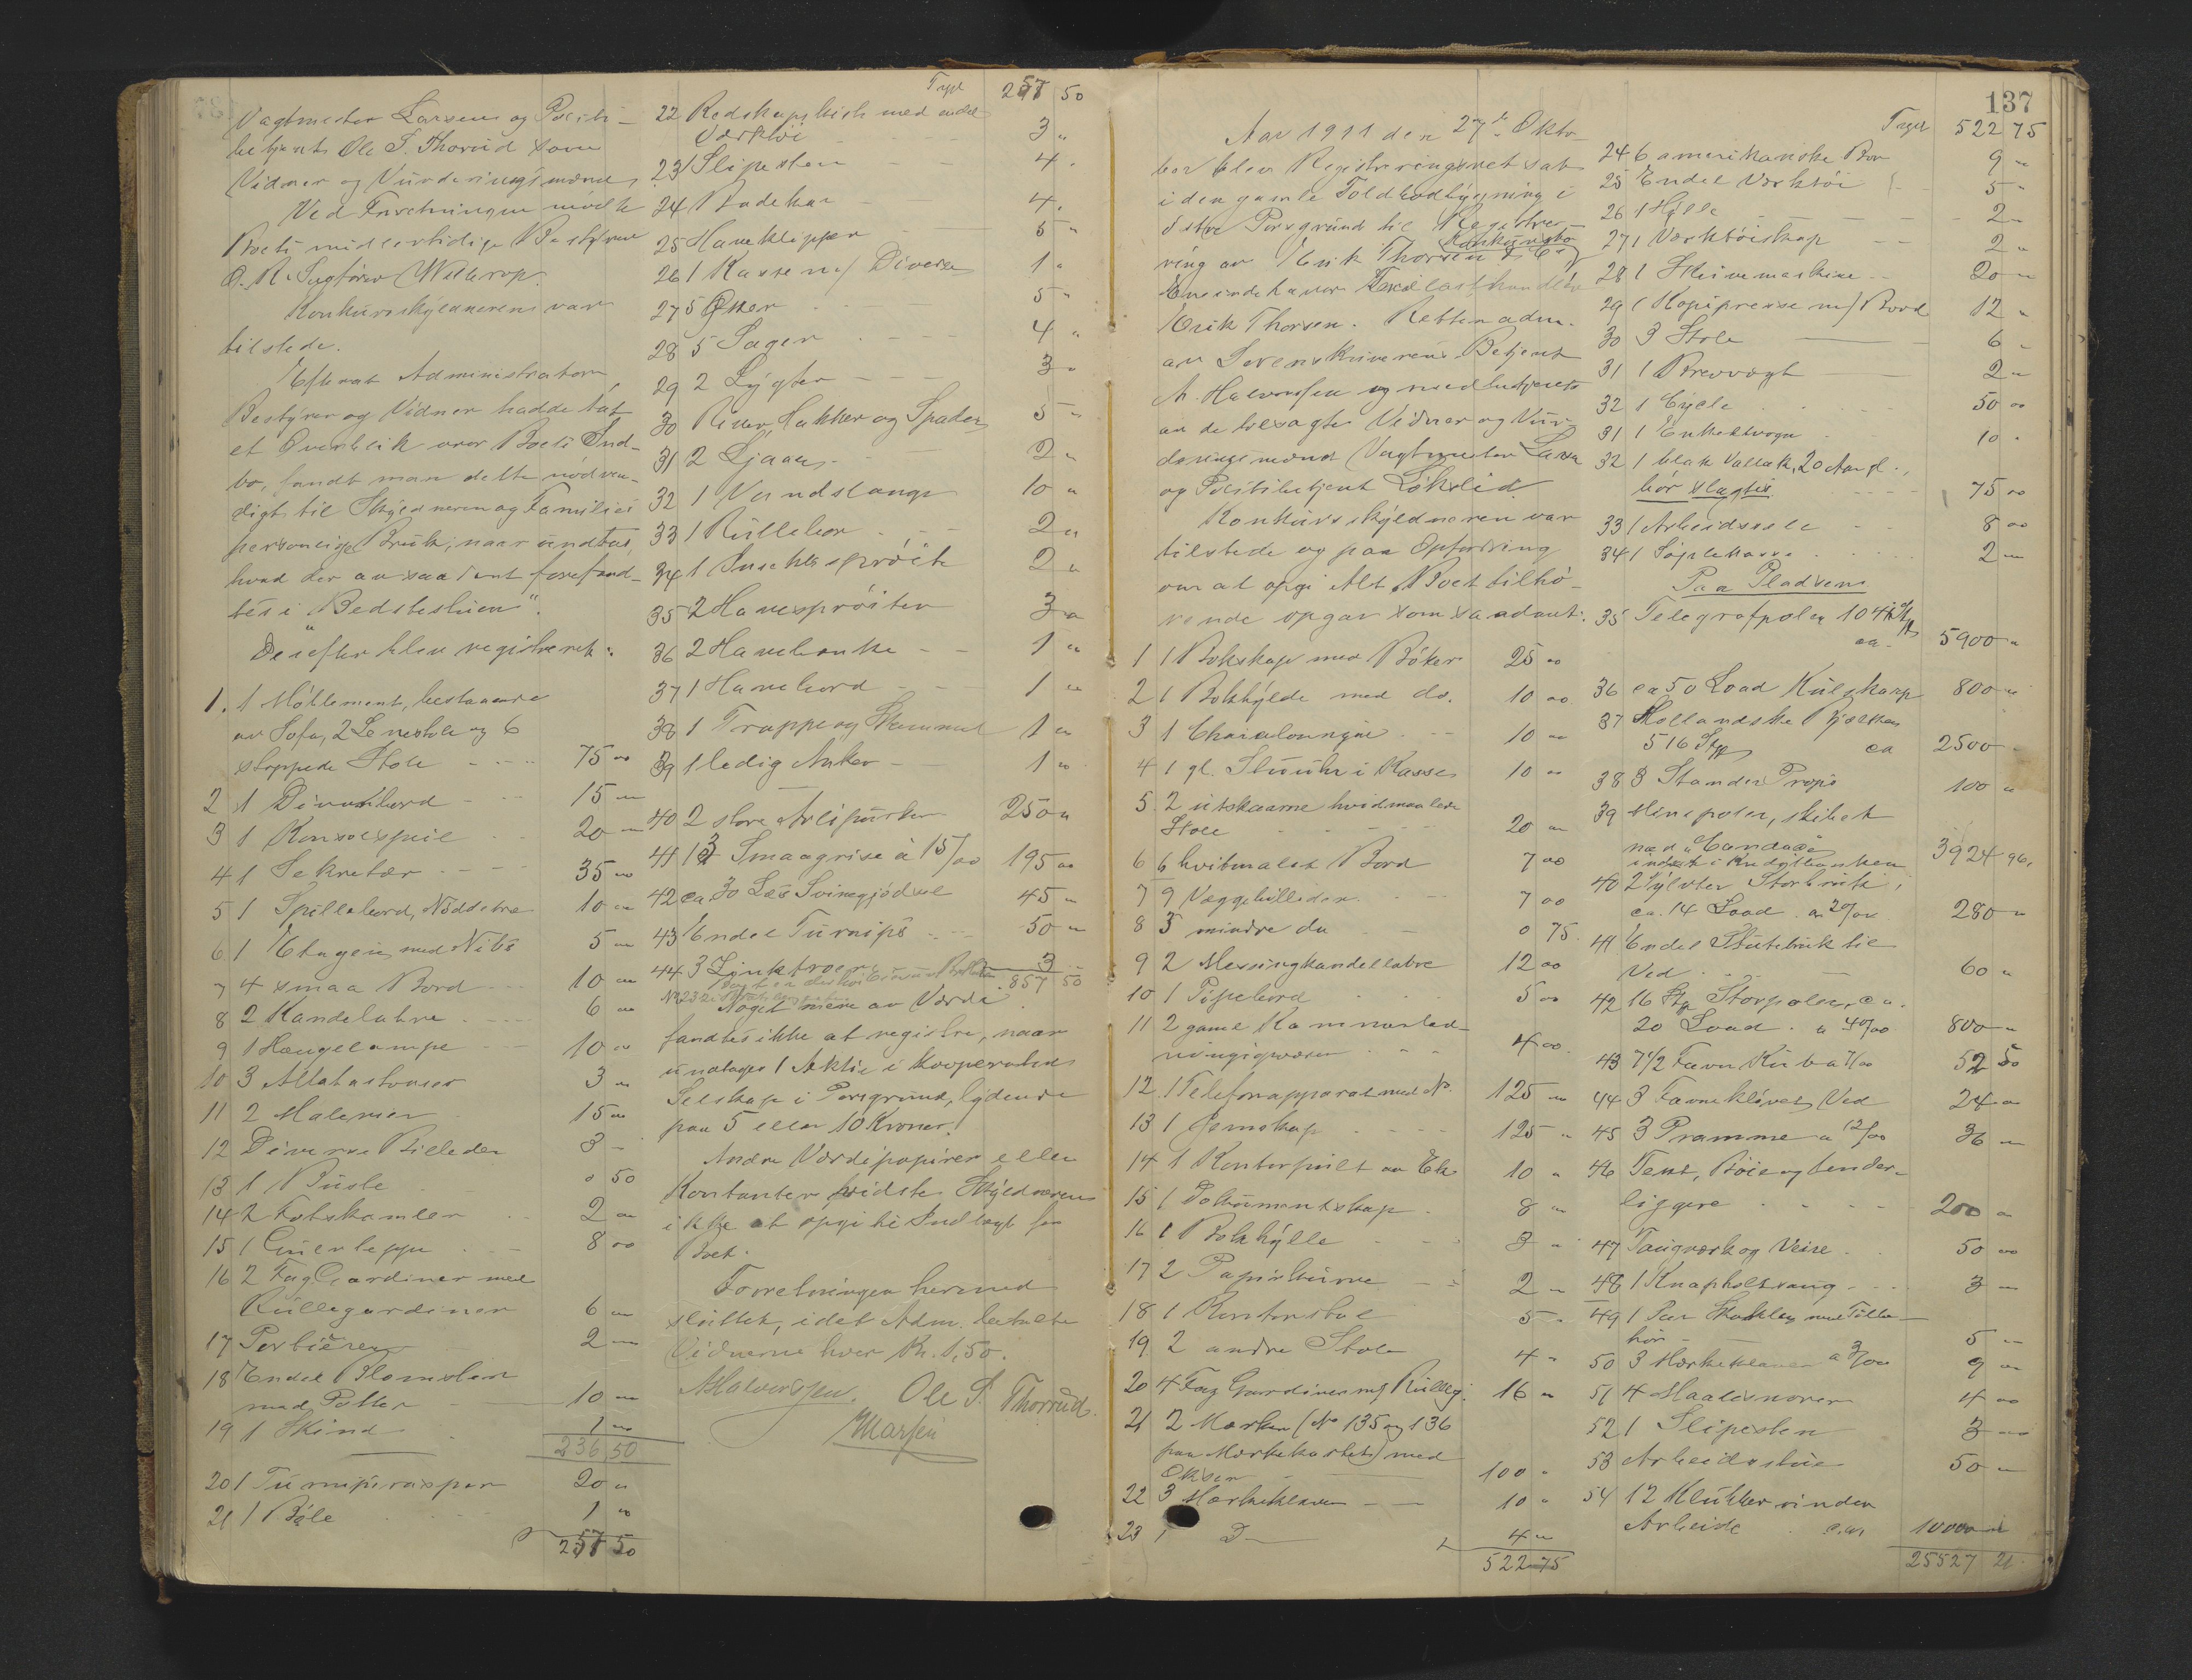 Vagtmester Larsen og Politi-
betjent Ole S. Thorrud som
Vidner og Vurderingsmænd,
Ved Forretningen mødte
Boets midlertidige Bestyrer
O. R. Sagfører
Konkursskyldneren var
tilstede.
Efterat Administrator,
Bestyrer og Vidner hadde tat
et Overblik over Boets Ind-
bo, fandt man dette nødven-
digt til Skyldneren og Families
personlige Bruk, naar undtas,
hvad der av saadant forefand-
tes i "Bedstestuen".
Derefter blev registreret:
1. 1 Möblement, bestaaende
av Sofa, 2 Lenestole og 6
stoppede Stole 75 "
2 1 Divanbord 15 "
3 1 Konsolspeil 20 "
4 1 Sekretær 35 "
5 1 Spillebord, Nöddetræ 10 "
6 1 Etagere med Nibs 5 "
7 4 smaa Bord 10 "
8 2 Kandelabre 6 "
9 1 Hængelampe 10 "
10 3 3 "
11 2 Malerier 15 "
12 Diverse Billeder 3 "
13 1 Büste 0 50
14 2 Fotskamler 2 "
15 1 Gulvteppe 8 00
16 2 Fag Gardiner med
Rullegardiner 6 "
17 Portierer 2 "
18 Endel Blomster
med Potter 10 "
19 1 Skind 1 "
236 50
20 1 Turnipsrasper 20 "
21 1 Båle 1 "
257 50
Trspt 257 50
22 Redskapskist med endel
Værktöi 3 "
23 1 Slipesten 4 "
24 1 Badekar 4 "
25 Haveklipper 5 "
26 1 Kasse m/ Diverse 1 "
27 5 Økser 5 "
28 5 Sager 4 "
29 2 Lygter 3 "
30 River, Hakker og Spader 5 "
31 2 Ljaaer 2 "
32 1 Vendstange 10 "
33 1 Rullebör 2 "
34 1 Insektspröite 2 "
35 2 Havespröiter 3 "
36 2 Havebænke 1 "
37 1 Havebord 1 "
38 1 Trappe og Skammel 1 "
39 1 ledig Anker 1 "
40 2 store Avlspurker 250 "
41 13 Smaagrise à 15/00 195 00
42 ca. 30 Læs Svinegjödsel 45 "
43 Endel Turnips 50 "
44 3 3 "
857 50
Noget mere av Værdi
fandtes ikke at registre, naar
undtages 1 Aktie i Kooperativt
Selskap i Porsgrund, lydende
paa 5 eller 10 Kroner.
Andre Værdipapirer eller
Kontanter vidste Skyldneren
ikke at opgi til Indtægt for
Boet.
Forretningen hermed
sluttet, idet Adm. betalte
Vidnerne hver Kr. 1,50.
Halvorsen. Ole S. Thorrud.
Larsen
137
Aar 1911 den 27de Okto-
ber blev Registreringsret sat
i den gamle Toldbodbygning i
östre Porsgrund til Registre-
ring av Erik Thorsen & Co's Konkursbo
Eneindehaver Trælasthandler
Erik Thorsen. Retten adm.
av Sorenskriverens Betjent
A. Halvorsen og medbetjent
av de tilsagte Vidner og Vur-
deringsmænd Vagtmester Larsen
og Politibetjent Lökslid.
Konkursskyldneren var
tilstede og paa Opfordring
om at opgi Alt Boet tilhö-
rende opgav som saadant:
1 1 Bokskap med Böker 25 00
2 1 Bokhylde med do. 10 00
3 1 Chaiselounque 10 00
4 1 gl. Stuuhr i Kasse 10 00
5 2 utskaarne hvidmalede
Stole 20 00
6 6 hvitmalet Bord 7 00
7 9 Væggebilleder 7 00
8 3 mindre do 0 75
9 2 Messingkandellabre 12 00
10 1 Pipebord 5 00
11 2 gamle
4 00
12 1 Telefonapparat med No. 125 "
13 1 Jernskap 125 "
14 1 Kontorpult av Ek 10 "
15 1 Dokumentskap 8 "
16 1 Bokhylle 3 "
17 2 Papirkurve 2 "
18 1 Kontorstol 5 "
19 2 andre Stole 4 "
20 4 Fag Gardiner m/ Rulleg. 16 "
21 2 Merker (No 135 og 136
paa Merkekartet) med
Økser 100 "
22 3 Merkeklaver 10 "
23 1 Do 4 "
522 75
Trspt 522 75
24 6 amerikanske Bor 9 "
25 Endel Værktöi 5 "
26 1 Hylle 2 "
27 1 Værktöiskap 2 "
28 1 Skrivemaskine 20 "
29 1 Kopipresse m/ Bord 12 "
30 3 Stole 6 "
31 1 Brevvægt 2 "
32 1 Cycle 50 00
31 1 Enkeltvogn 10 "
32 1 blak Vallak, 20 Aar gl.,
bör slagtes 75 00
33 1 Arbeidssele 8 00
34 1 Söplekasse 2 "
Paa Pladsen
35 Telegrafpoler 104 Stk
ca. 5900 "
36 ca 50 Load Kulskarp 800 "
37 Hollandske Bjælker
516 Stk ca 2500 "
38 3 Stander Props 100 "
39 Minepoler, skibet
med "Candace"
indsat i Kreditbanken 3924 96
40 2 Tylvter Storbruk,
ca. 14 Load a 20/00 280 "
41 Endel til
Ved 60 "
42 16 Storpoler, ca.
20 Load a 40/00 800 "
43 7 1/2 Favn Kub a 7/00 52 50
44 3 Favne klövet Ved 24 "
45 3 Pramme a 12/00 36 "
46 Tent, Böie og fender-
liggere 200 "
47 Taugverk og Veire 50 00
48 1 Knapholtvang 3 "
49 1 Par Skokler med Tilbe-
hör 5 "
50 3 Merkeklaver a 3/00 9 "
51 4 Maalesnorer 4 00
52 1 Slipesten 3 00
53 Arbeidsstue 50 "
54 12 Klukker under
Arbeide ca. 10000 "
25527 21